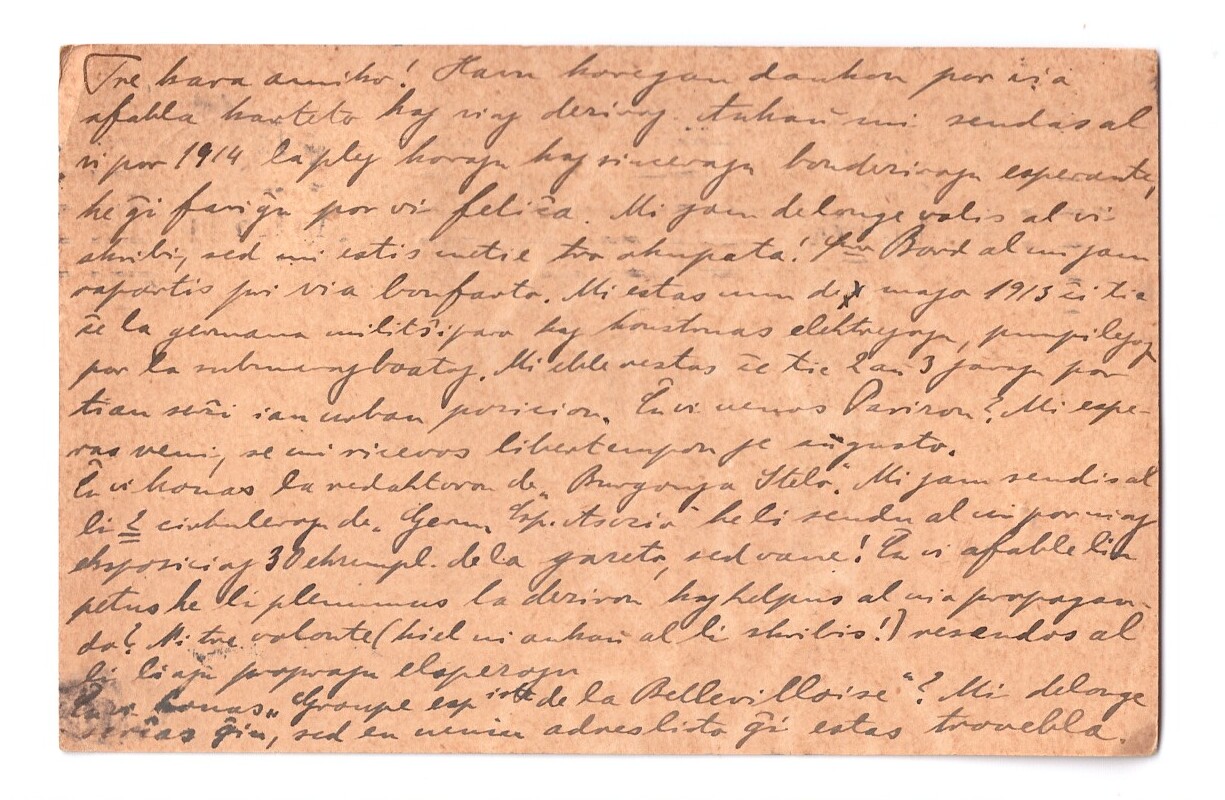 Tre kara amiko! Havu koregan dankon por via
afabla karteto kaj viaj deziroj. Ankaŭ mi sendas al
vi por 1914 la plej korajn kaj sincerajn bondezirojn esperante,
ke ĝi fariĝu por vi feliĉa. Mi jam delonge volis al vi
skribi, sed mi estis metie tro okupata! Bord al mi jam
raportis pri via bonfarto. Mi estas nun de majo 1913 ĉi tie
ĉe la germana militŝiparo kaj konstruas elektrejojn, pumpilejojn
por la submarajboatoj. Mi eble restas ĉe tie 2 aŭ 3 jarojn por
tian serĉi ian urban pozicion. Ĉu vi venos Parizon? Mi espe-
ras veni, se mi ricevos libertempon je aŭgusto.
Ĉu vi konas la redaktoron de „Burgonja Stelo". Mi jam sendis al
li 2 cirkulerojn de „Germ. Esp. Asocio" ke li sendu al mi por niaj
ekspozicioj 30 ekzempl. de la gazeto, sed vane! Ĉu vi afable lin
petus ke li plenumus la deziron kaj helpus al nia propagan-
do? Mi tre volonte (kiel mi ankaŭ al li skribis!) resendos al
li liajn proprajn elspezojn
Ĉu vi konas „Groupe esp iste de la Bellevilloise"? Mi delonge
serĉas ĝin, sed en neniu adreslisto ĝi estas trovebla.